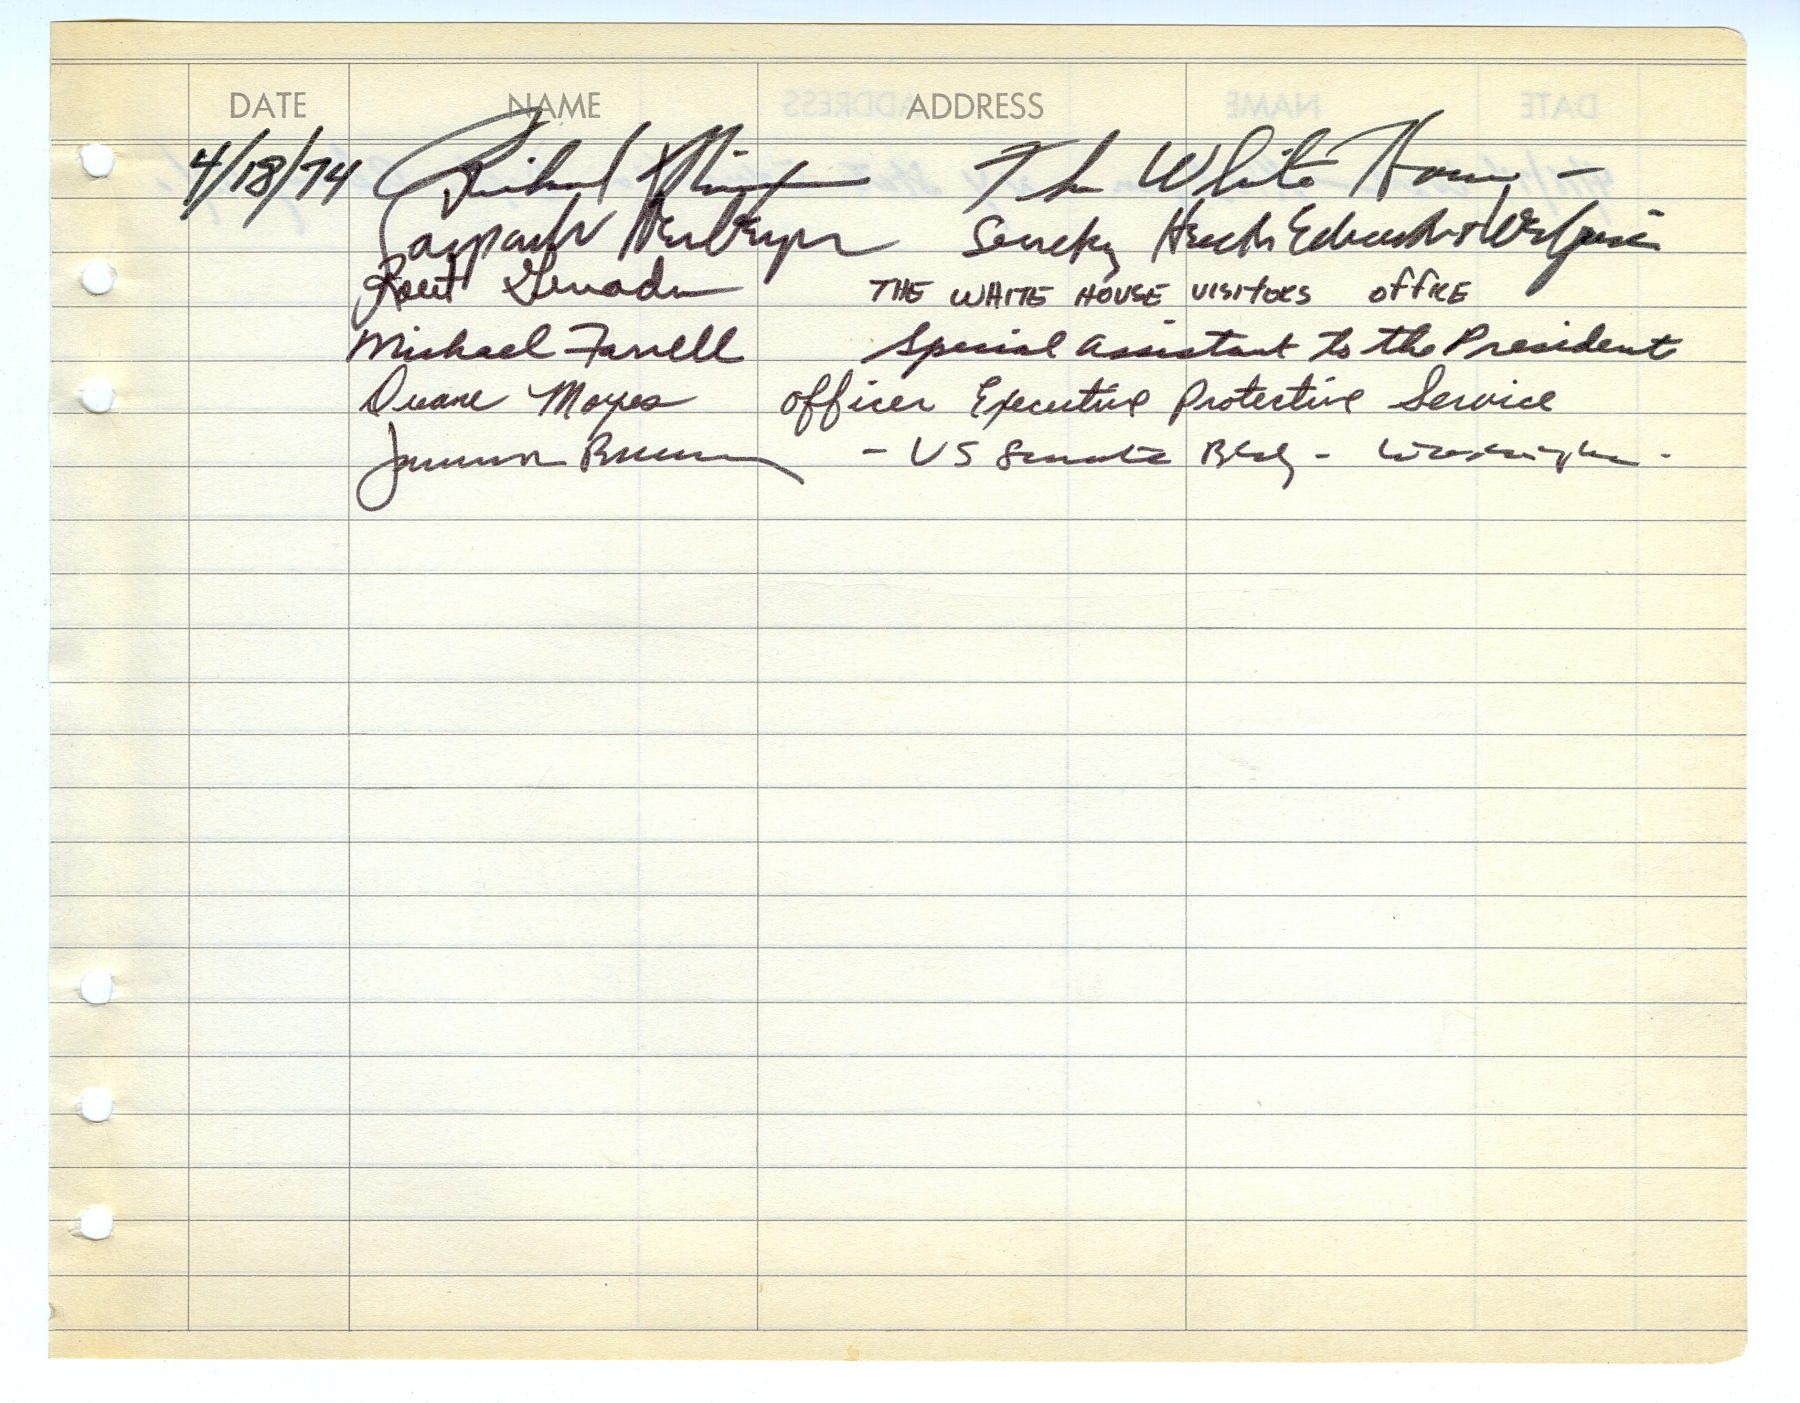 DATE NAME ADDRESS
4/18/74 Richard Nixon The White House –
Caspar W Weinberger Secretary Health Education & Welfare
THE WHITE HOUSE VISITORS OFFICE
Michael Farrell Special Assistant to the President
Duane Moyes Officer Executive Protective Service
– US Senate Bldg – Washington –